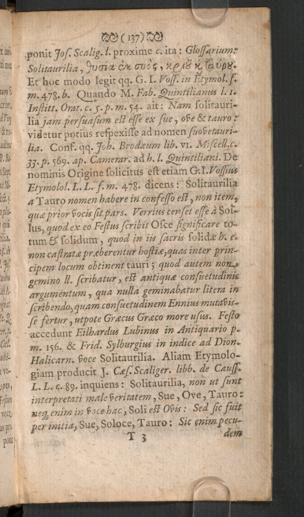 (137)
ponit Jos. Scalig. l. proxime c. ita: Glossarium:
Solitaurilia, θυσία ἐκ συὸς, κριοῦ κ ταύρου.
Et hoc modo legit qq. G. I. Voss. in Etymol. f.
m. 478. b. Quando M. Fab. Quintilianus l. 1.
Instit. Orat. c. 5. p. m. 54. ait: Nam solitauri-
lia jam persuasum est esse ex sue, ove & tauro:
videtur potius respexisse ad nomen suovetauri-
lia. Conf. qq. Joh. Brodæum lib. VI. Miscell. c.
33. p. 569. ap. Camerar. ad h. l. Quintiliani. De
nominis Origine solicitus est etiam G. I. Vossius
Etymolol. L. L. f. m. 478. dicens: Solitaurilia
a Tauro nomen habere in confesso est, non item,
quæ prior vocis sit pars. Verrius censet esse à Sol-
lus, quod ex eo Festus scribit Osce significare to-
tum & solidum, quod in iis sacris solidæ h. e.
non castratæ præberentur hostiæ, quas inter prin-
cipem locum obtinent tauri; quod autem non
gemino ll. scribatur, est antiquæ consuetudinis
argumentum, qua nulla geminabatur litera in
scribendo, quam consuetudinem Ennius mutavis-
se fertur, utpote Græcus Græco more usus. Festo
accedunt Eilhardus Lubinus in Antiquario p.
m. 156. & Frid. Sylburgius in indice ad Dion.
Halicarn. voce Solitaurilia. Aliam Etymolo-
giam producit J. Cæs. Scaliger. libb. de Causs.
L. L. c. 89. inquiens: Solitaurilia, non ut sunt
interpretati male veritatem, Sue, Ove, Tauro:
neq, enim in voce hac, Soli est Ovis: Sed sic fuit
per initia, Sue, Soloce, Tauro: Sic enim pecu-
T 3 dem